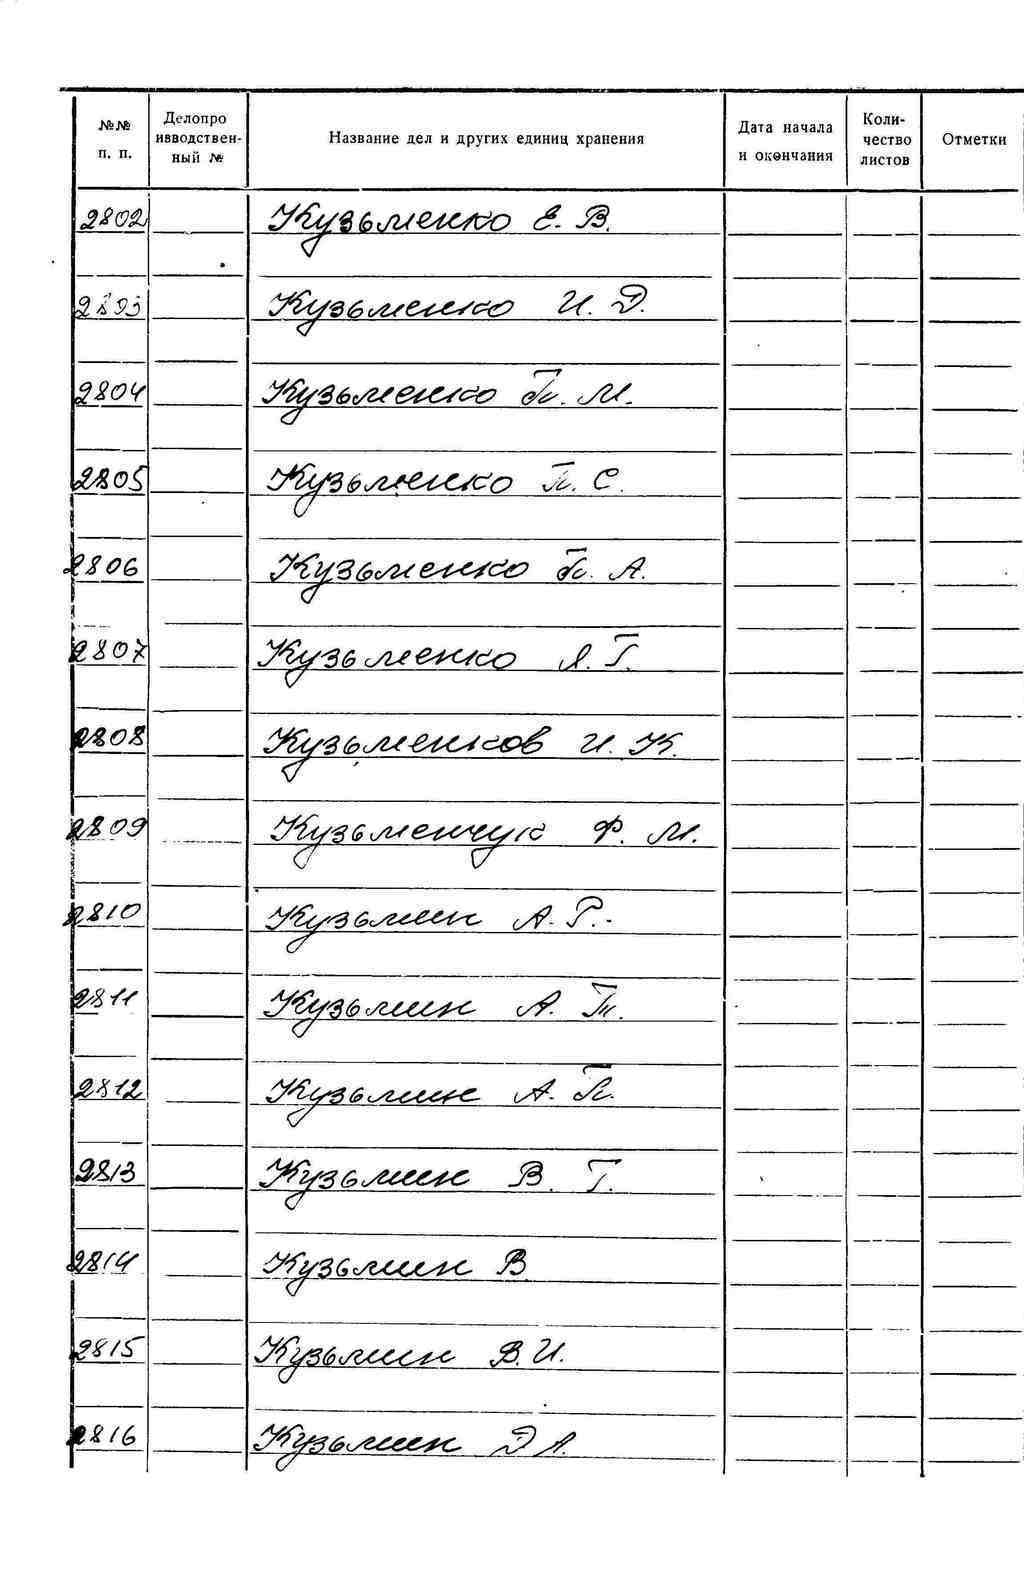 №№ п. п. Делопро изводствен- ный № Название дел и других единиц хранения Дата начала и окончания Коли- чество листов Отметки
2802 Кузьменко Е. В.
2803 Кузьменко И. Д.
2804 Кузьменко П. М.
2805 Кузьменко П. С.
2806 Кузьменко П. А.
2807 Кузьменко Я. Г.
2808 Кузьменков И. К.
2809 Кузьменчук Ф. М.
2810 Кузьмин А. Г.
2811 Кузьмин А. Т.
2812 Кузьмин А. П.
2813 Кузьмин В. Г.
2814 Кузьмин В
2815 Кузьмин В. И.
2816 Кузьмин Д А.